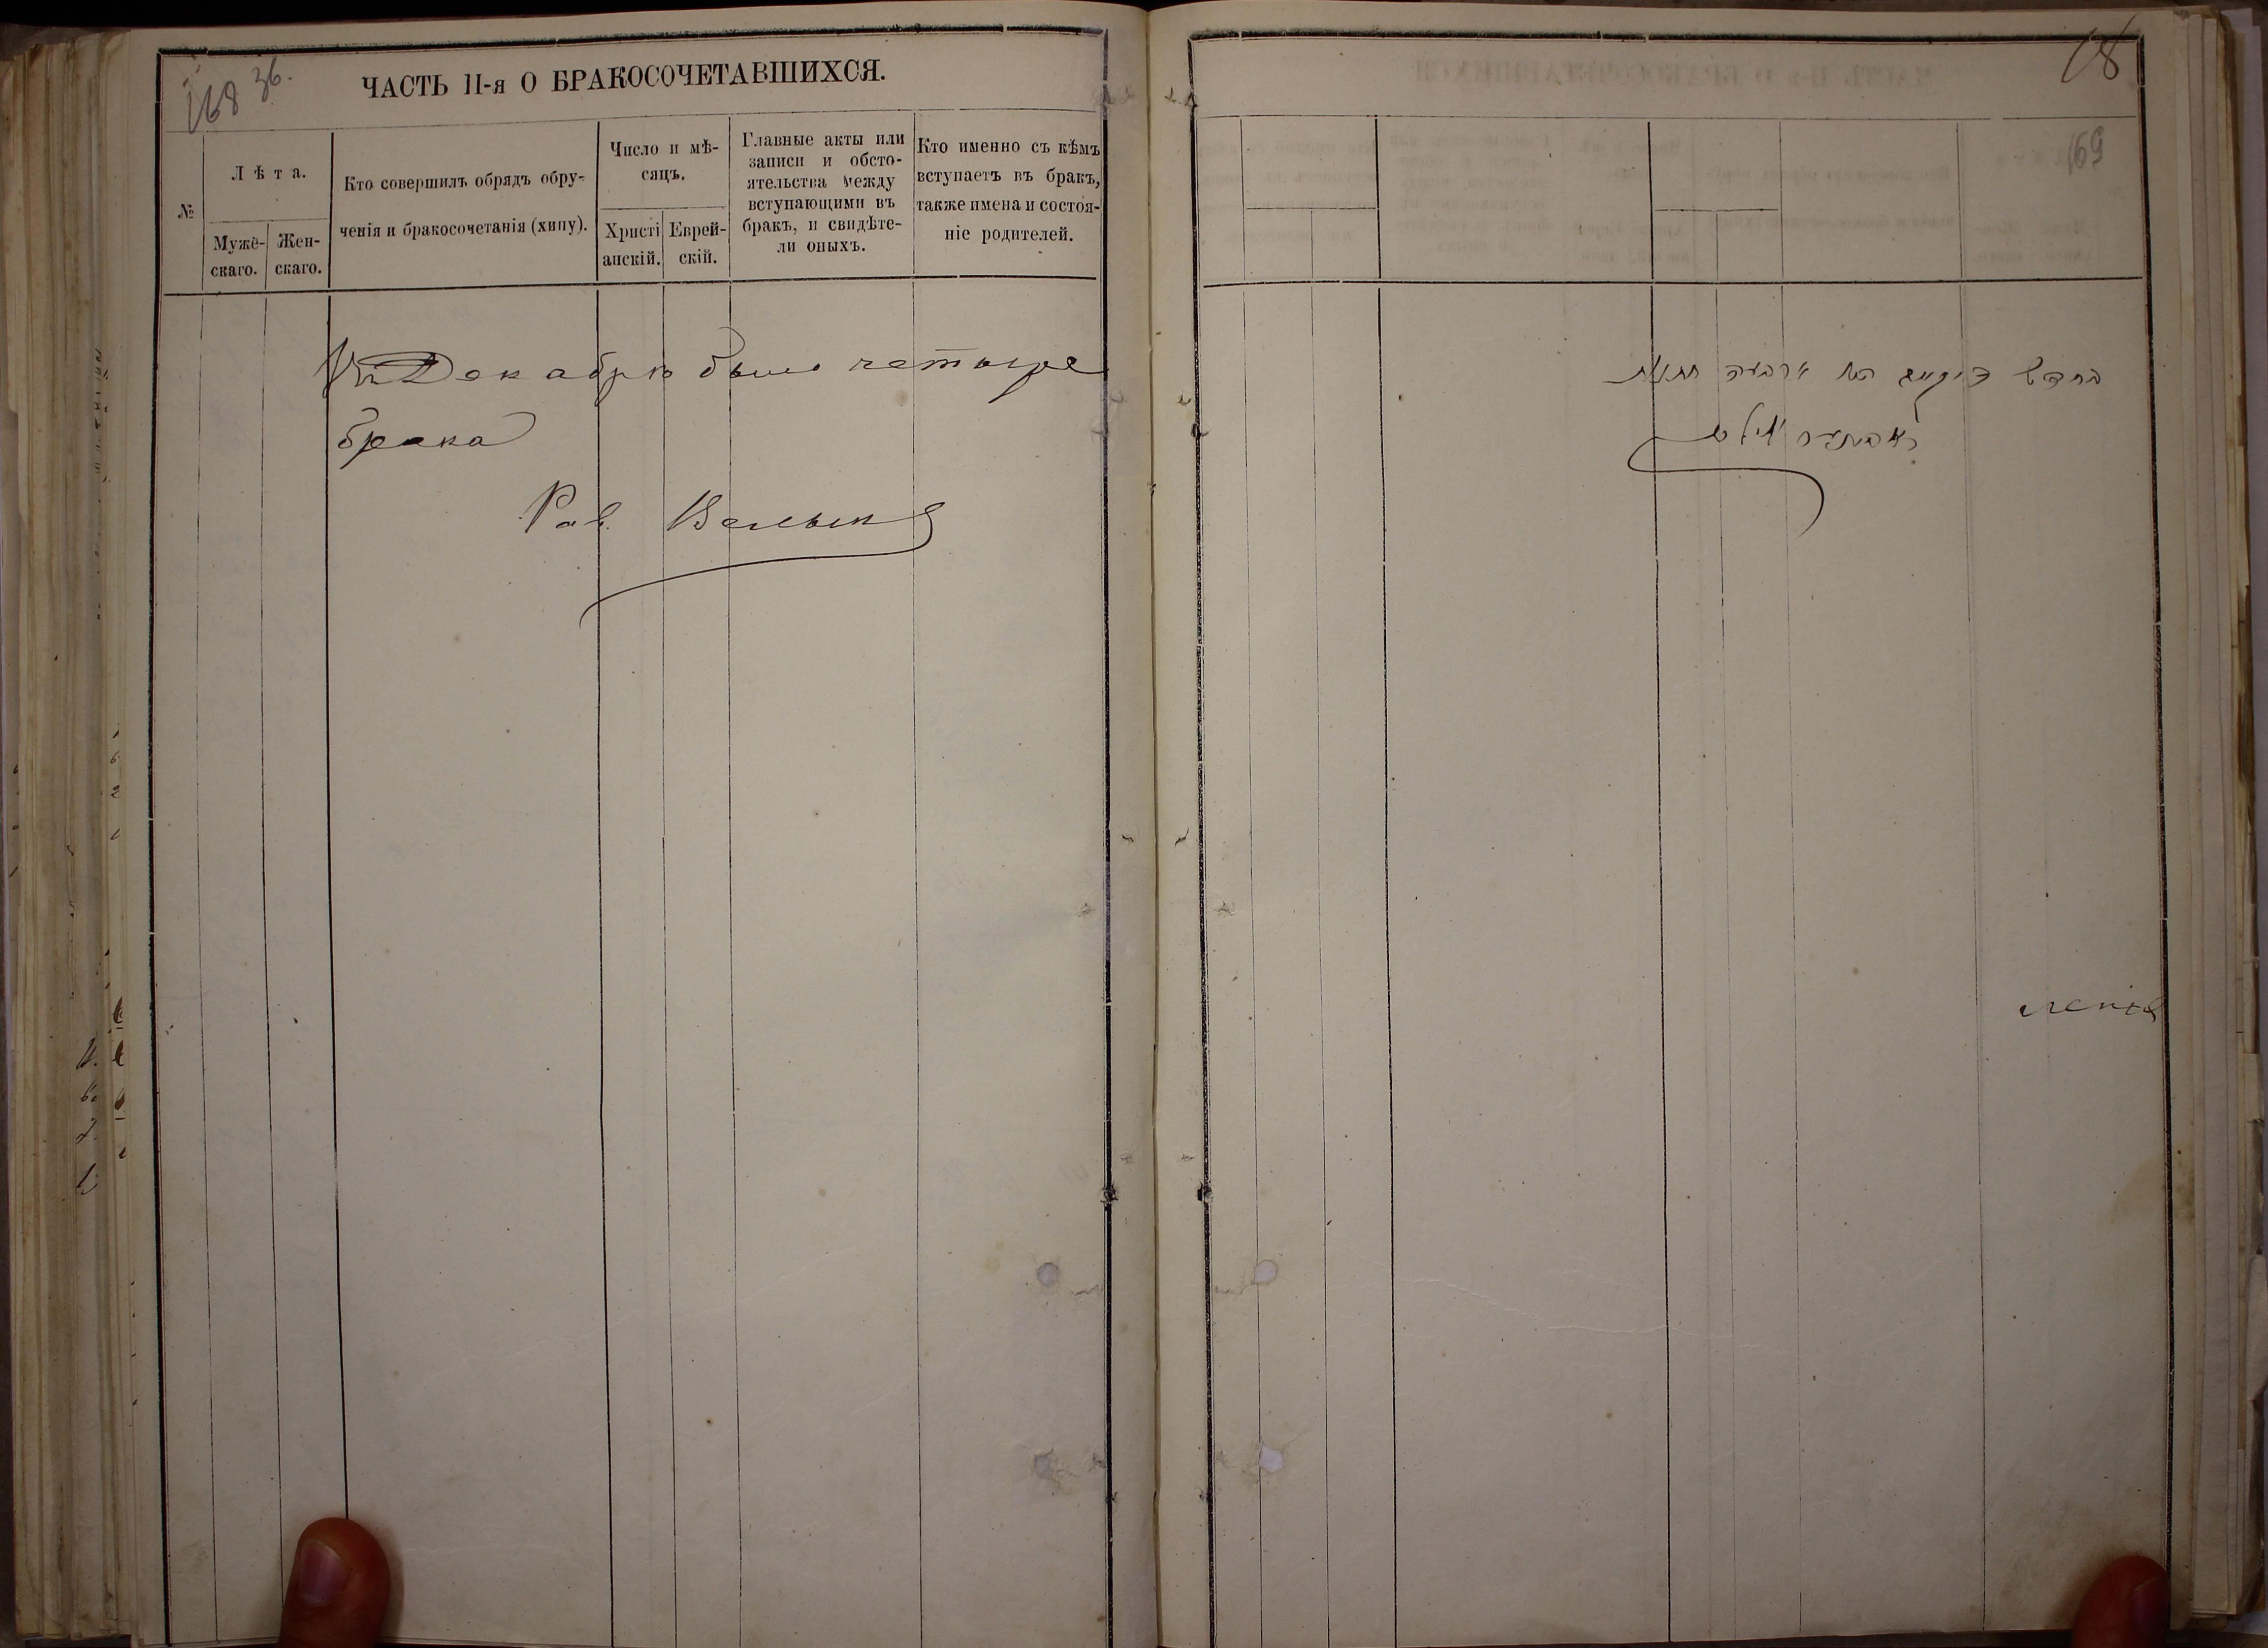 168 36.
ЧАСТЬ II-я О БРАКОСОЧЕТАВШИХСЯ.
№
Лѣта.
Мужё-
скаго.
Жен-
скаго.
Кто совершилъ обрядъ обру-
ченія и бракосочетанія (хипу).
Число и мѣ-
сяцъ.
Христі
анскій.
Еврей-
скій.
Главные акты или
записи и обсто-
ятельства между
вступающими въ
бракъ, и свидѣте-
ли оныхъ.
Кто именно съ кѣмъ
вступаетъ въ бракъ,
также имена и состоя-
ніе родителей.
Въ Декабрѣ было четыре
брака
Рав.
169
בחדש ארבעה